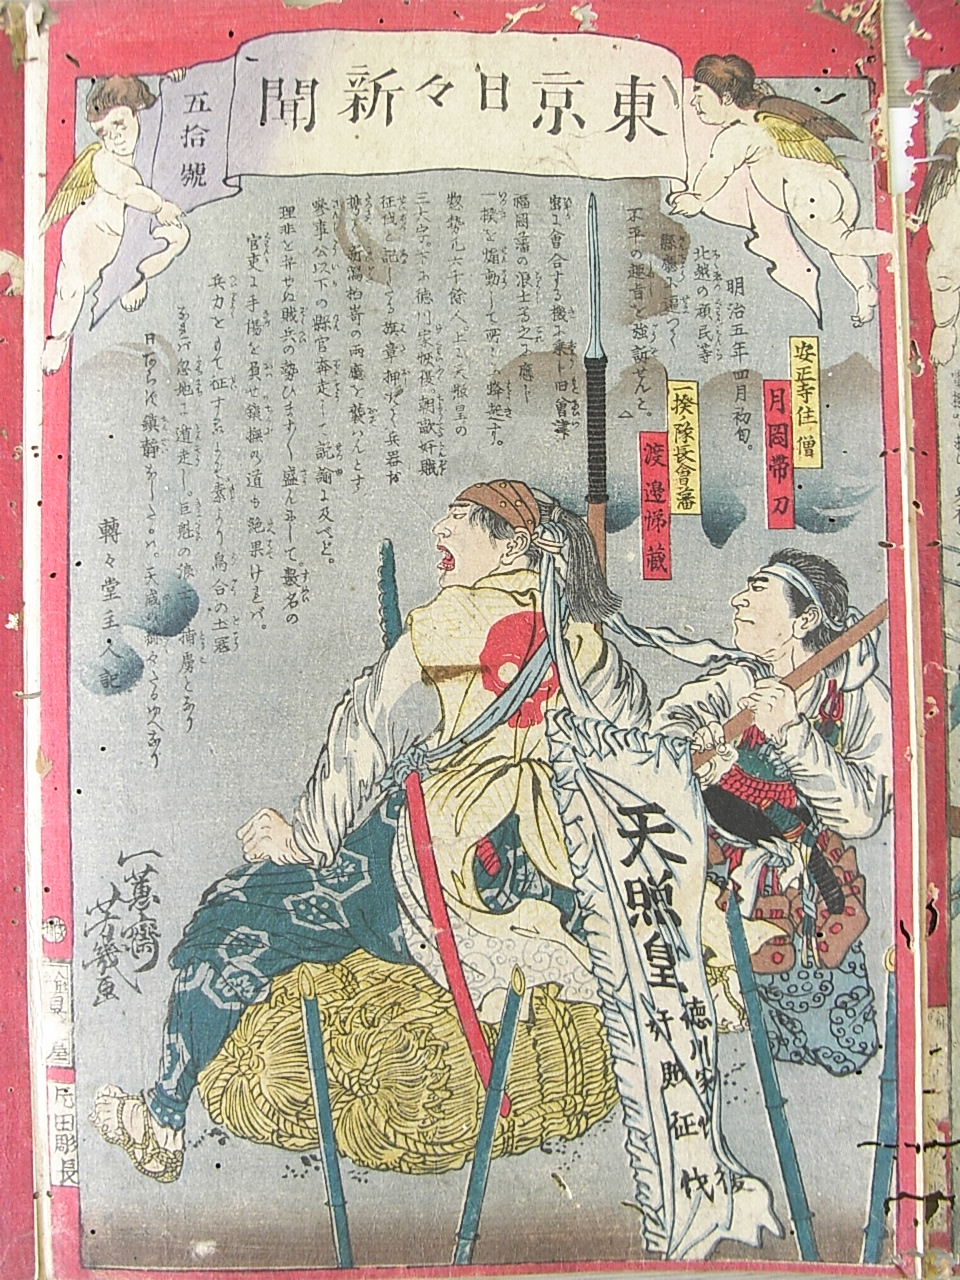 東京日々新聞
五拾號
安正寺住僧
月岡帯刀
一揆ノ隊長會藩
渡邉悌蔵
明治五年四月初旬。
北越の頑民等
縣廳に逼つて
不平の趣旨を強訴せんと。
密に會合する機に乗し旧會津
福岡藩の浪士等之に應じ
一揆を煽動して所々に蜂起す。
惣勢凡六千餘人。上に天照皇の
三大字。下に徳川家恢復。朝敵奸賊
征伐と記しる旗章押立て兵器を
携へ。新潟柏嵜の両處を襲ハんとす
参事公以下の縣官奔走して説諭に及べど。
理非を弁せぬ賊兵の勢ひますく盛んにして。数名の
官吏に手場を負せ鎮撫の道も絶果けれバ。
兵力をもて征する
忽地に遁走し。巨魁の浪士捕虜となり
日ならず鎮静
轉々堂主人記
一蕙齋
芳幾画
天照皇
徳川家恢復
奸賊征伐
具足屋
片田彫長